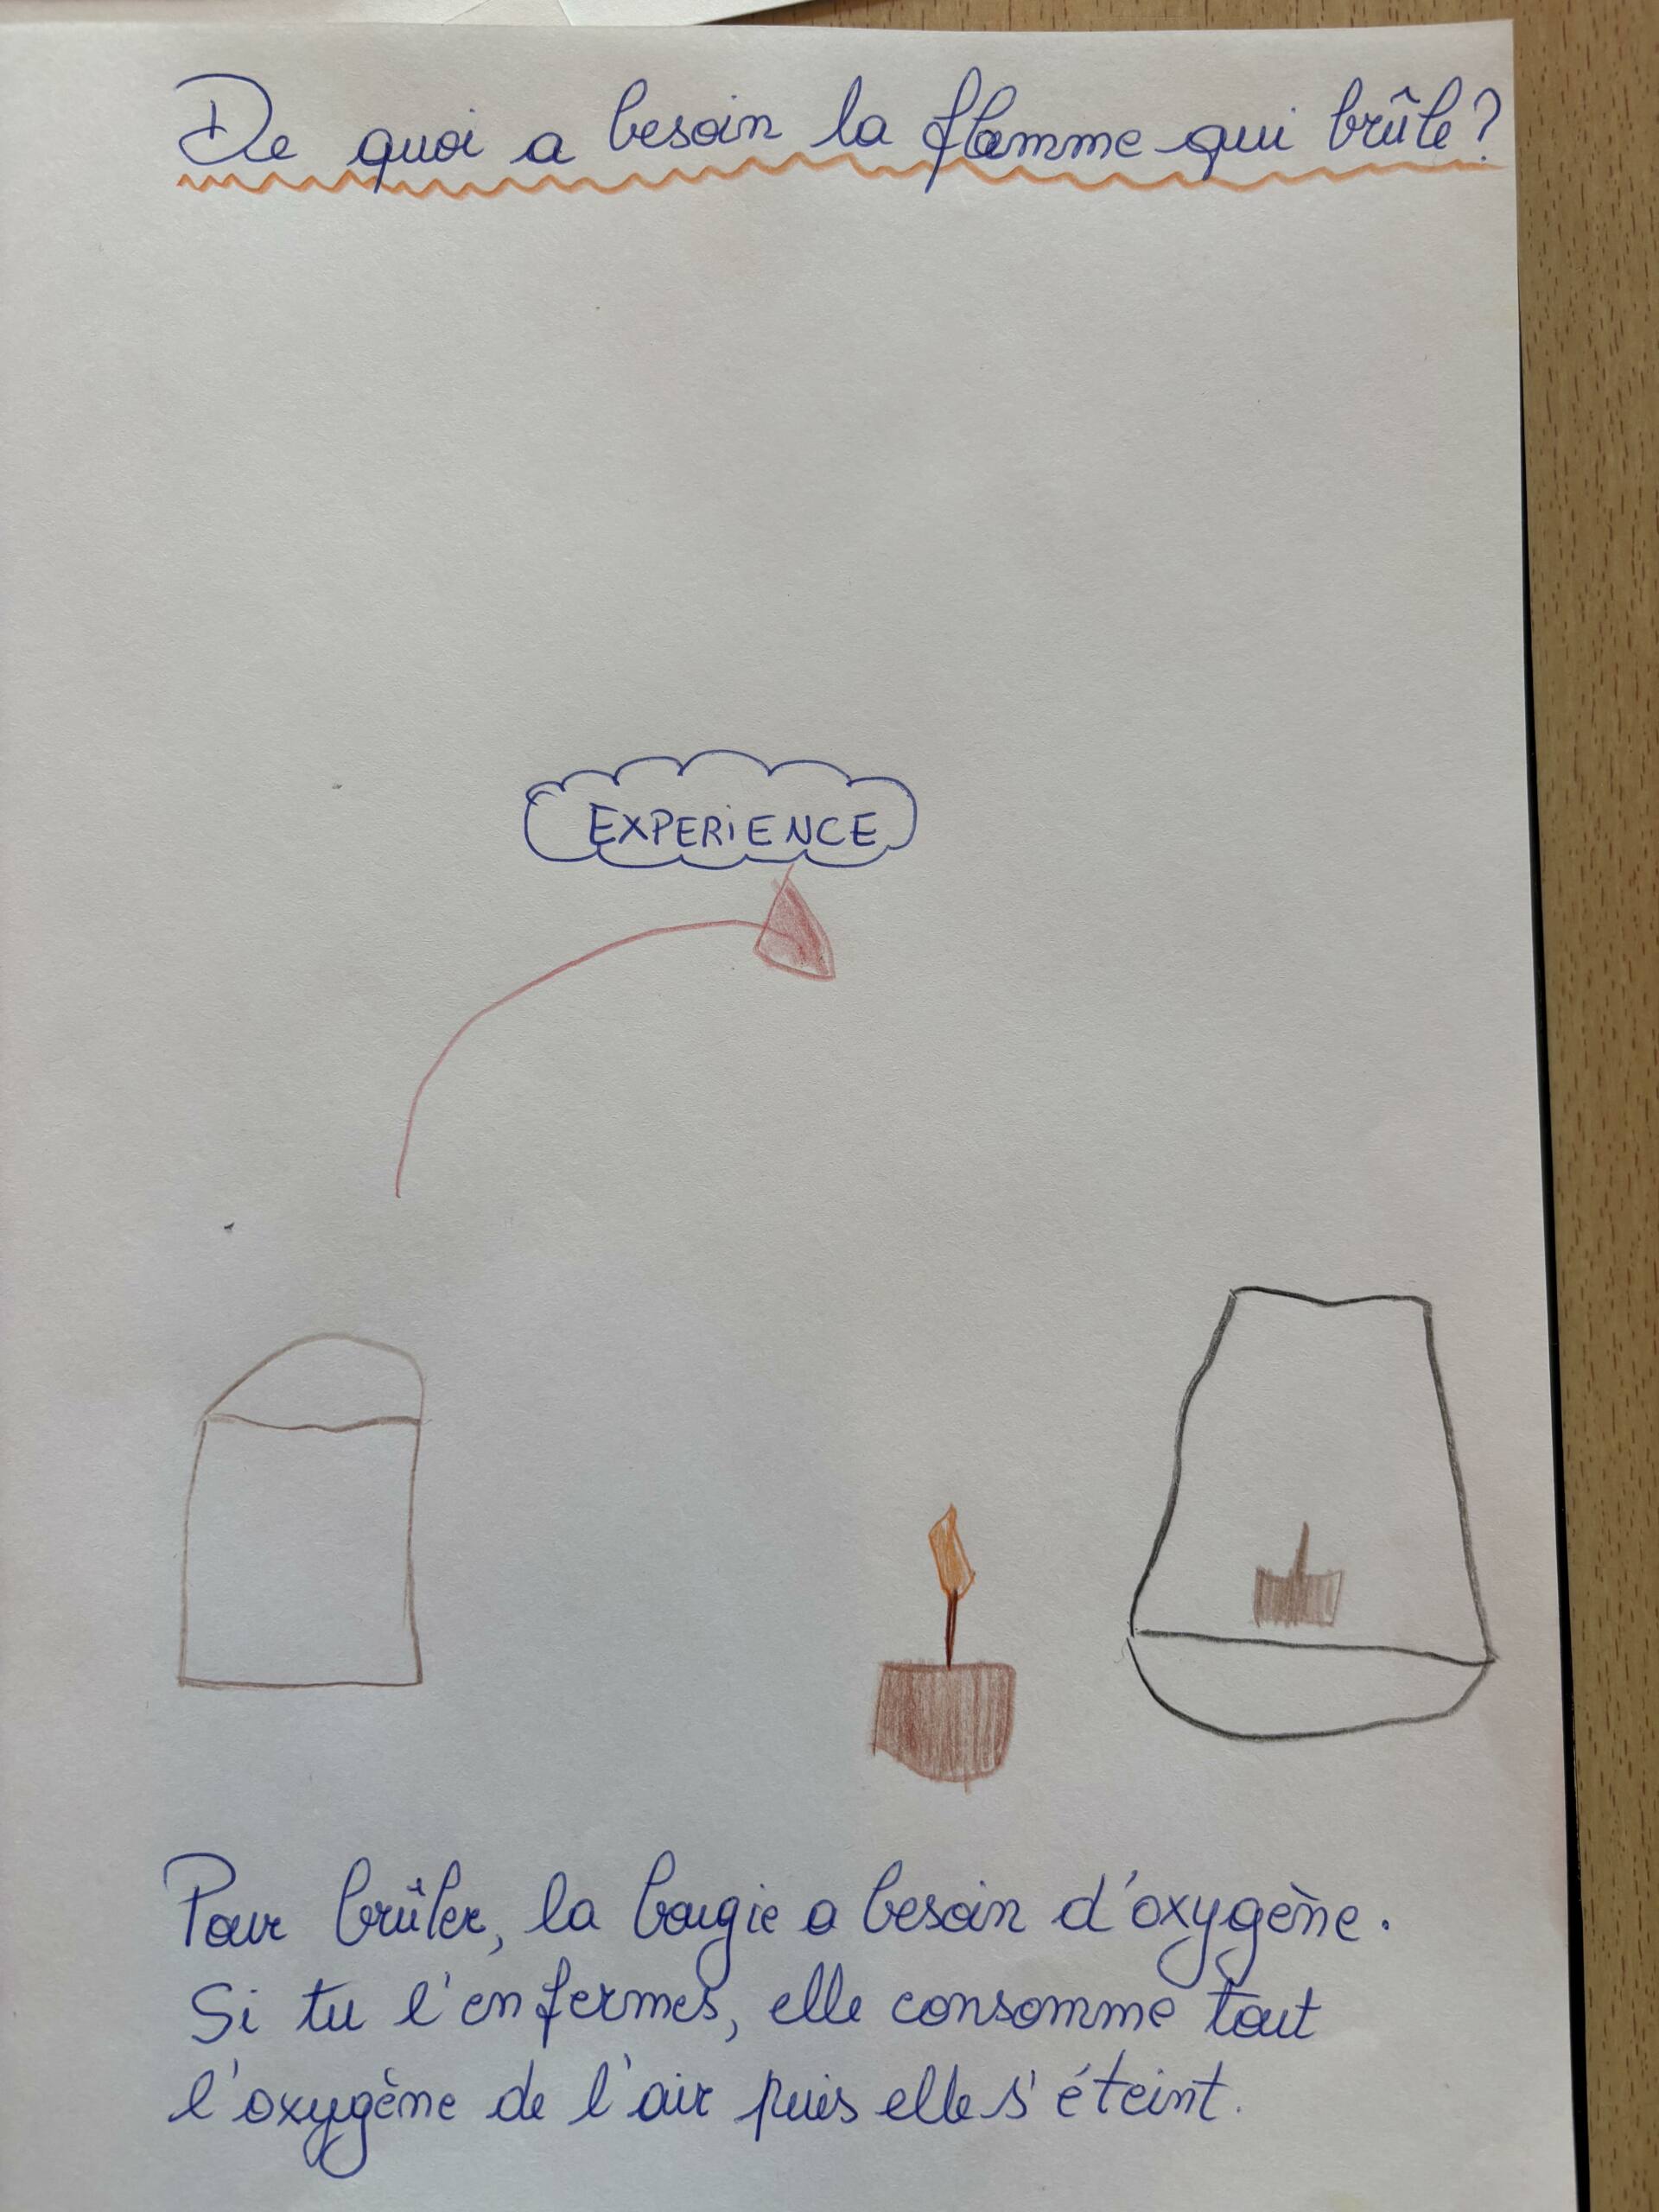 De quoi a besoin la flamme qui brûle?
EXPERIENCE
Pour brûler, la bougie a besoin d'oxygène.
Si tu l'enfermes, elle consomme tout
l'oxygène de l'air puis elle s'éteint.